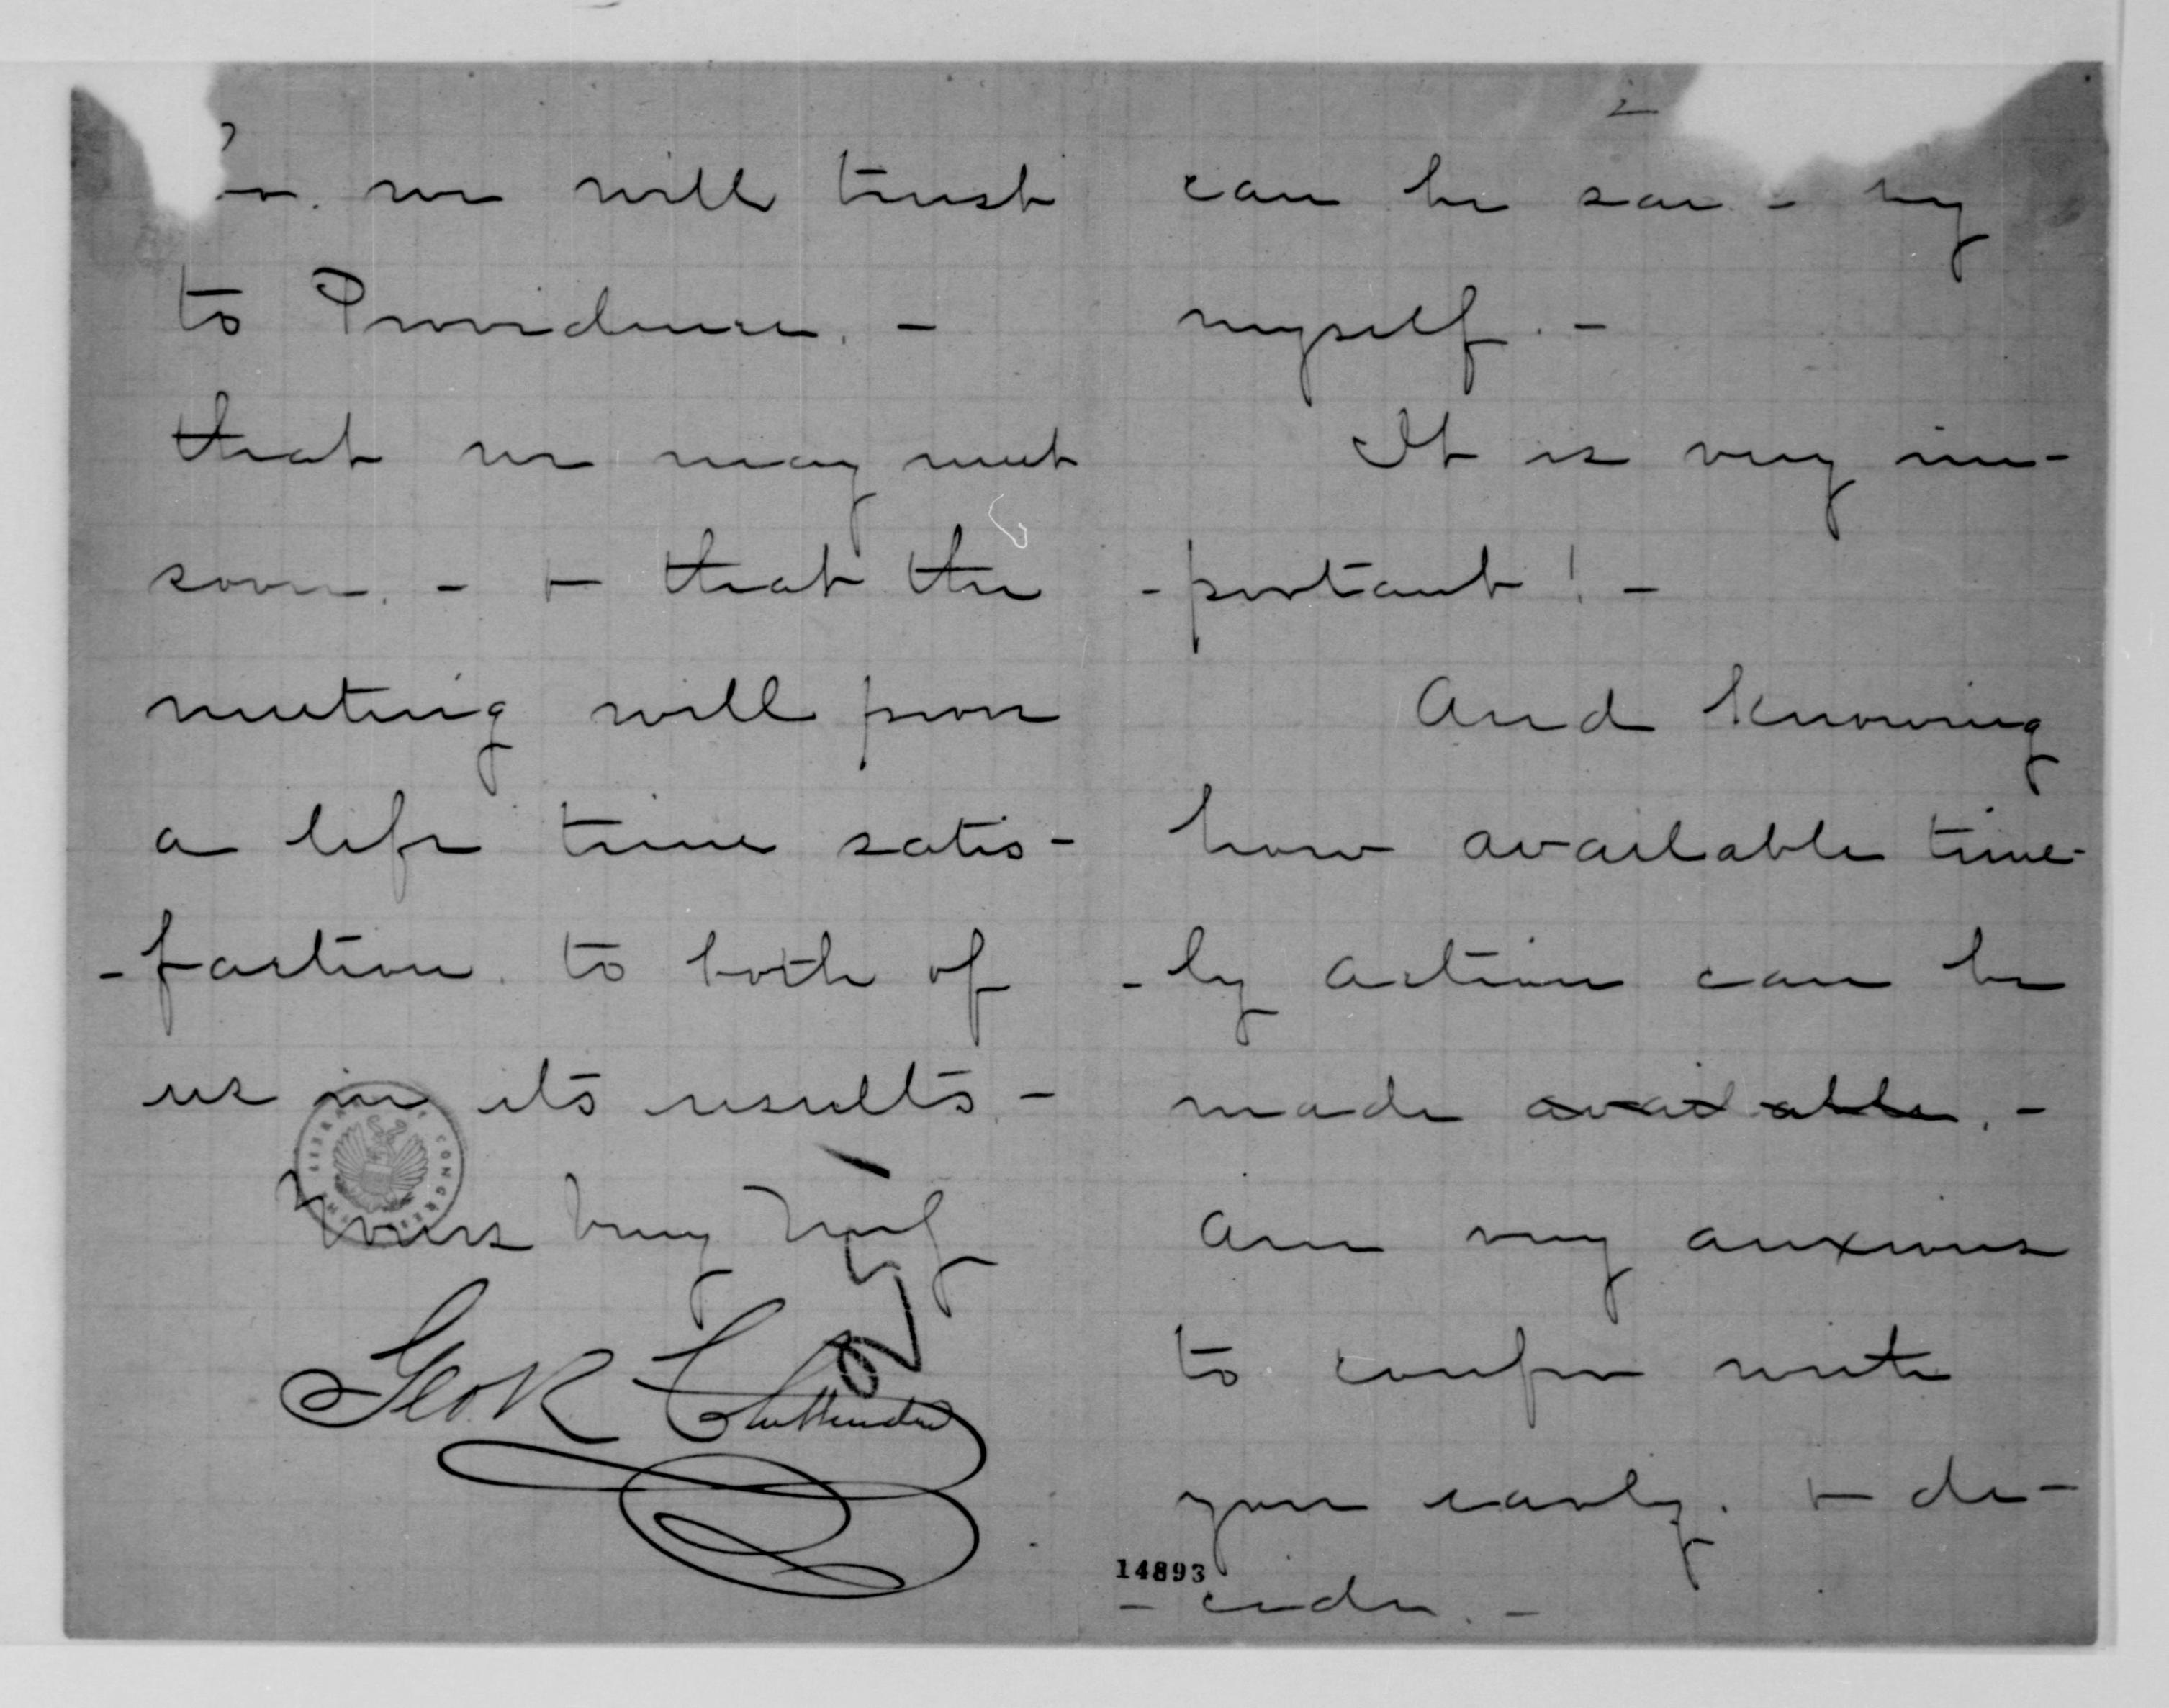 we will trust
to Providence. -
that we may meet
soon. - + that the
meeting will prove
a life time satis-
-faction to both of
us in its results. -
Yours very truly
Geo R Chittenden
25
2
can be sav by
myself. -
It is very im-
-portant! -
And knowing
how available time-
-ly action can be
made available. -
am very anxious
to confer with
you early. + de-
14893
- cide. -